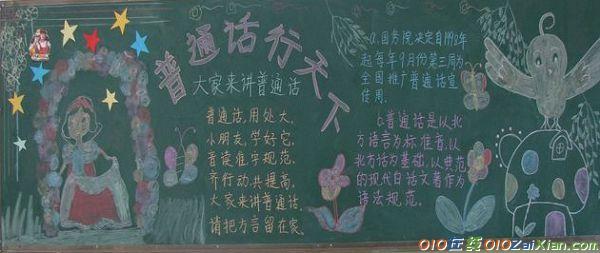 普通话行天下
大家来讲普通话
普通话,用处大,
小朋友,学好它,
音读准字规范,
齐行动,共提高,
大家来讲普通话,
请把方言留在家.
a.国务院决定自年
起每年9月份第三周为
全国推广普通话宣
传周.
b.普通话是以北
方语言为标准音,以
北方话为基础,以典范
的现代白话文著作为
语法规范.
010在线010ZaiXian.com